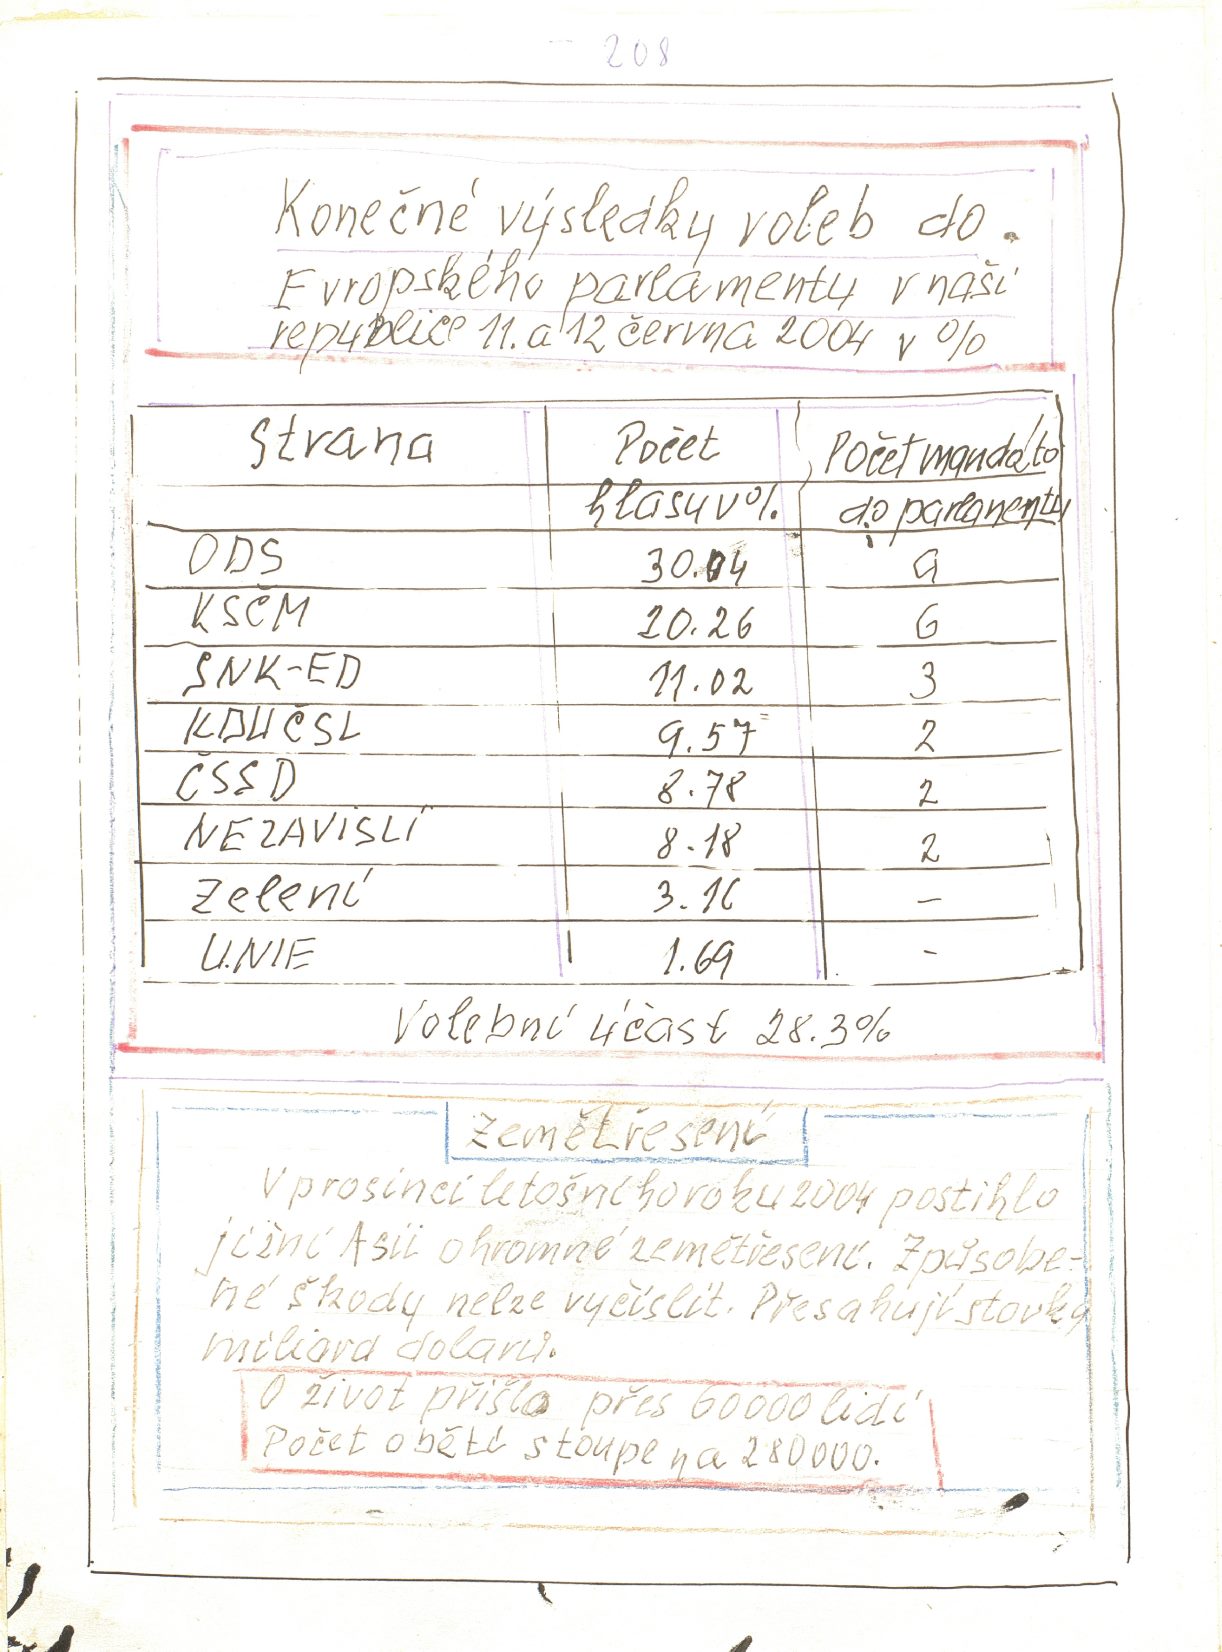 208
Konečné výsledky voleb do.
Evropského parlamentu v naší
republice 11. a 12 června 2004 v %
Strana Počet Počet mandáto
hlasu v %. do parlanentu
ODS 30.04 9
KSČM 20.26 6
SNK-ED 11.02 3
KDUČSL 9.57 2
ČSSD 8.78 2
NEZAVISLÍ 8.18 2
Zelení 3.16 –
U.NIE 1.69 -
Volební účast 28.3%
Zemětřesení
V prosinci letošního roku 2004 postihlo
jižní Asii ohromné zemětřesení. Způsobe-
né škody nelze vyčíslit. Přesahují stovky
miliard dolarů.
O život přišlo přes 60000 lidí
Počet obětí stoupe na 280000.